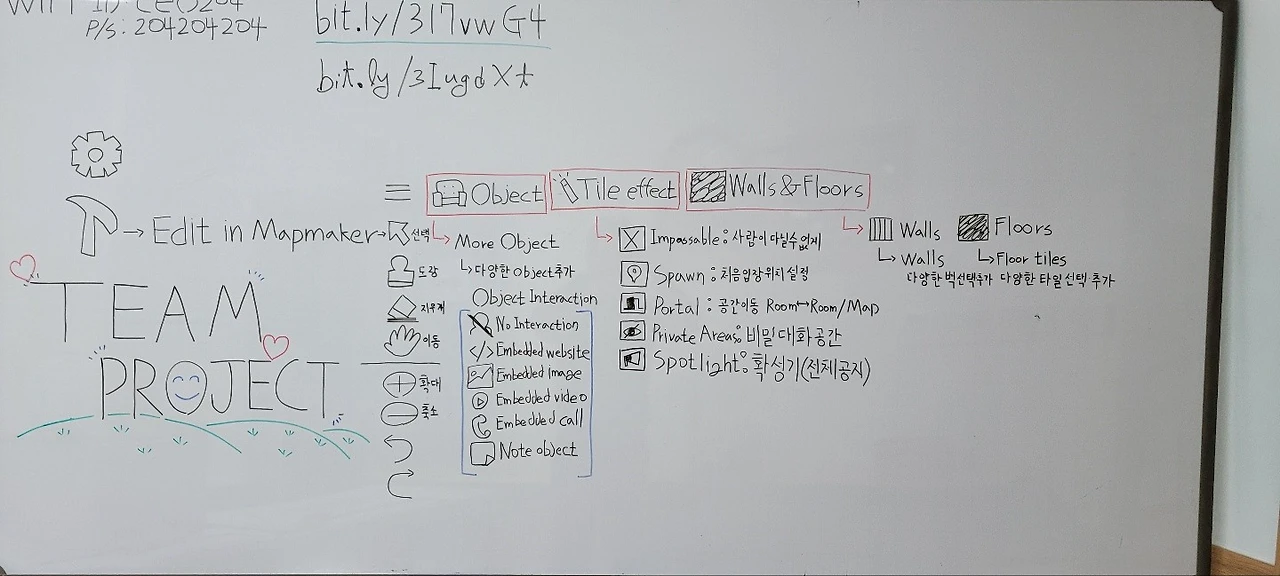 P/S: 204204204
bit.ly/3I7vwG4
bit.ly/3IugdXt
= Object Tile effect Walls&Floors
→ Edit in Mapmaker →
선택
도장
지우개
이동
확대
축소
More Object
다양한 Object 추가
Object Interaction
No Interaction
</> Embedded website
Embedded Image
Embedded video
Embedded call
Note object
Impassable: 사람이 다닐수 없게
Spawn: 처음 입장 위치 설정
Portal: 공간이동 Room↔Room/Map
Private Areas: 비밀 대화 공간
Spotlight: 확성기(전체공지)
Walls Floors
Walls Floor tiles
다양한 벽선택추가 다양한 타일 선택·추가
TEAM
PROJECT